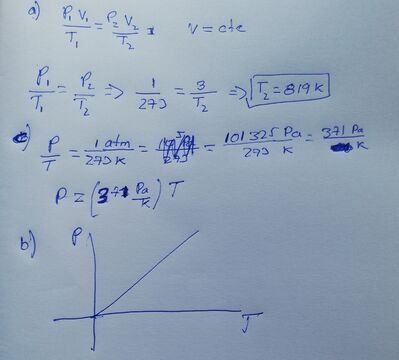 a) P₁ V₁ / T₁ = P₂ V₂ / T₂ V = cte
P₁ / T₁ = P₂ / T₂ => 1 / 273 = 3 / T₂ => T₂ = 819 K
c) P / T = 1 atm / 273 K = = 101 325 Pa / 273 K = 371 Pa / K
P = (371 Pa / K) T
b) P
T